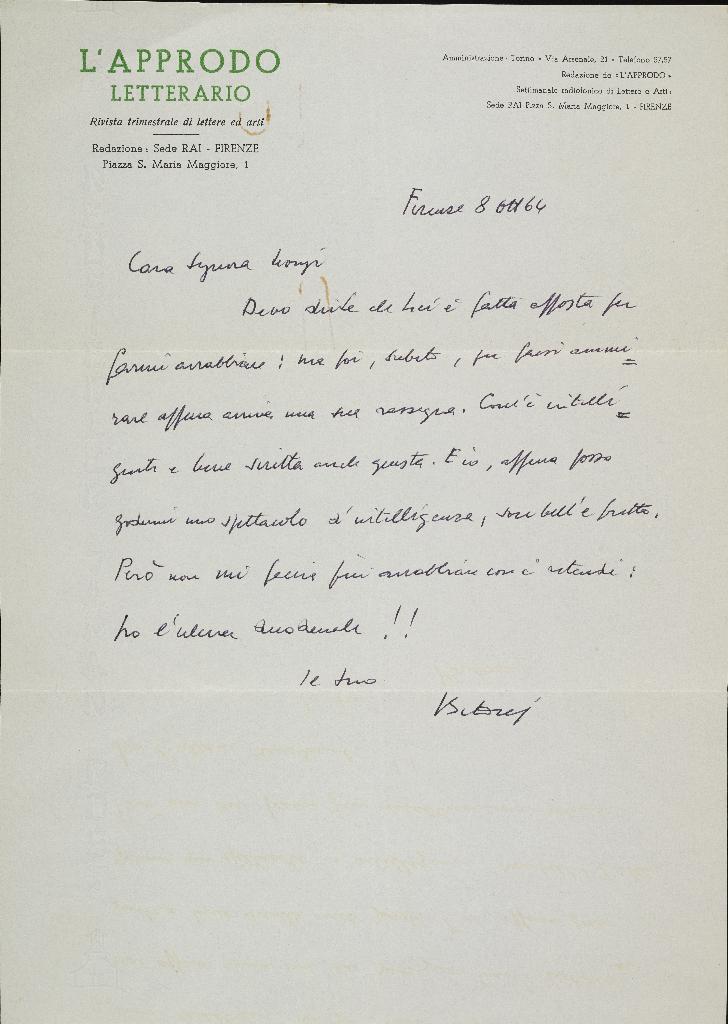 L'APPRODO
LETTERARIO
Rivista trimestrale di lettere ed arti
Redazione: Sede RAI - FIRENZE
Piazza S. Maria Maggiore, 1
Amministrazione: Torino - Via Arsenale, 21 - Telefono 57.57
Redazione de «L'APPRODO»
Settimanale radiofonico di Lettere e Arti:
Sede RAI P.zza S. Maria Maggiore, 1 - FIRENZE
Firenze 8 ott 64
Cara Signora Longhi
Devo dirle che Lei è fatta apposta per
farmi arrabbiare: ma poi, subito, per farsi ammi=
rare appena arriva una sua rassegna. Com'è intelli=
gente e bene scritta anche questa. E io, appena posso
godermi uno spettacolo d'intelligenza, son bell'e fritto.
Però non mi faccia più arrabbiare con i ritardi:
ho l'ulcera duodenale!!
Il suo